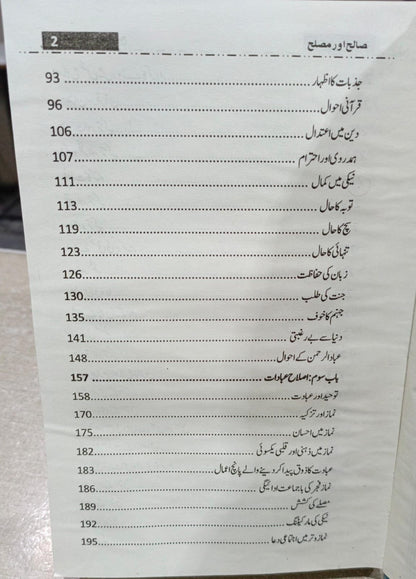 صالح اور مصلح 2
جذبات کا اظہار 93
قرآنی احوال 96
دین میں اعتدال 106
ہمدردی اور احترام 107
نیکی میں کمال 111
توبہ کا حال 113
سچ کا حال 119
تنہائی کا حال 123
زبان کی حفاظت 126
جنت کی طلب 130
جہنم کا خوف 135
دنیا سے بے رغبتی 141
عباد الرحمن کے احوال 148
باب سوم: اصلاح عبادات 157
توحید اور عبادت 158
نماز اور تزکیہ 170
نماز میں احسان 175
نماز میں ذہنی اور قلبی یکسوئی 182
عبادت کا ذوق پیدا کر دینے والے پانچ اعمال 183
نماز فجر کی باجماعت ادائیگی 186
مصلے کی کشش 189
نیکی کی مارکیٹنگ 192
نماز وتر میں اجتماعی دعا 195